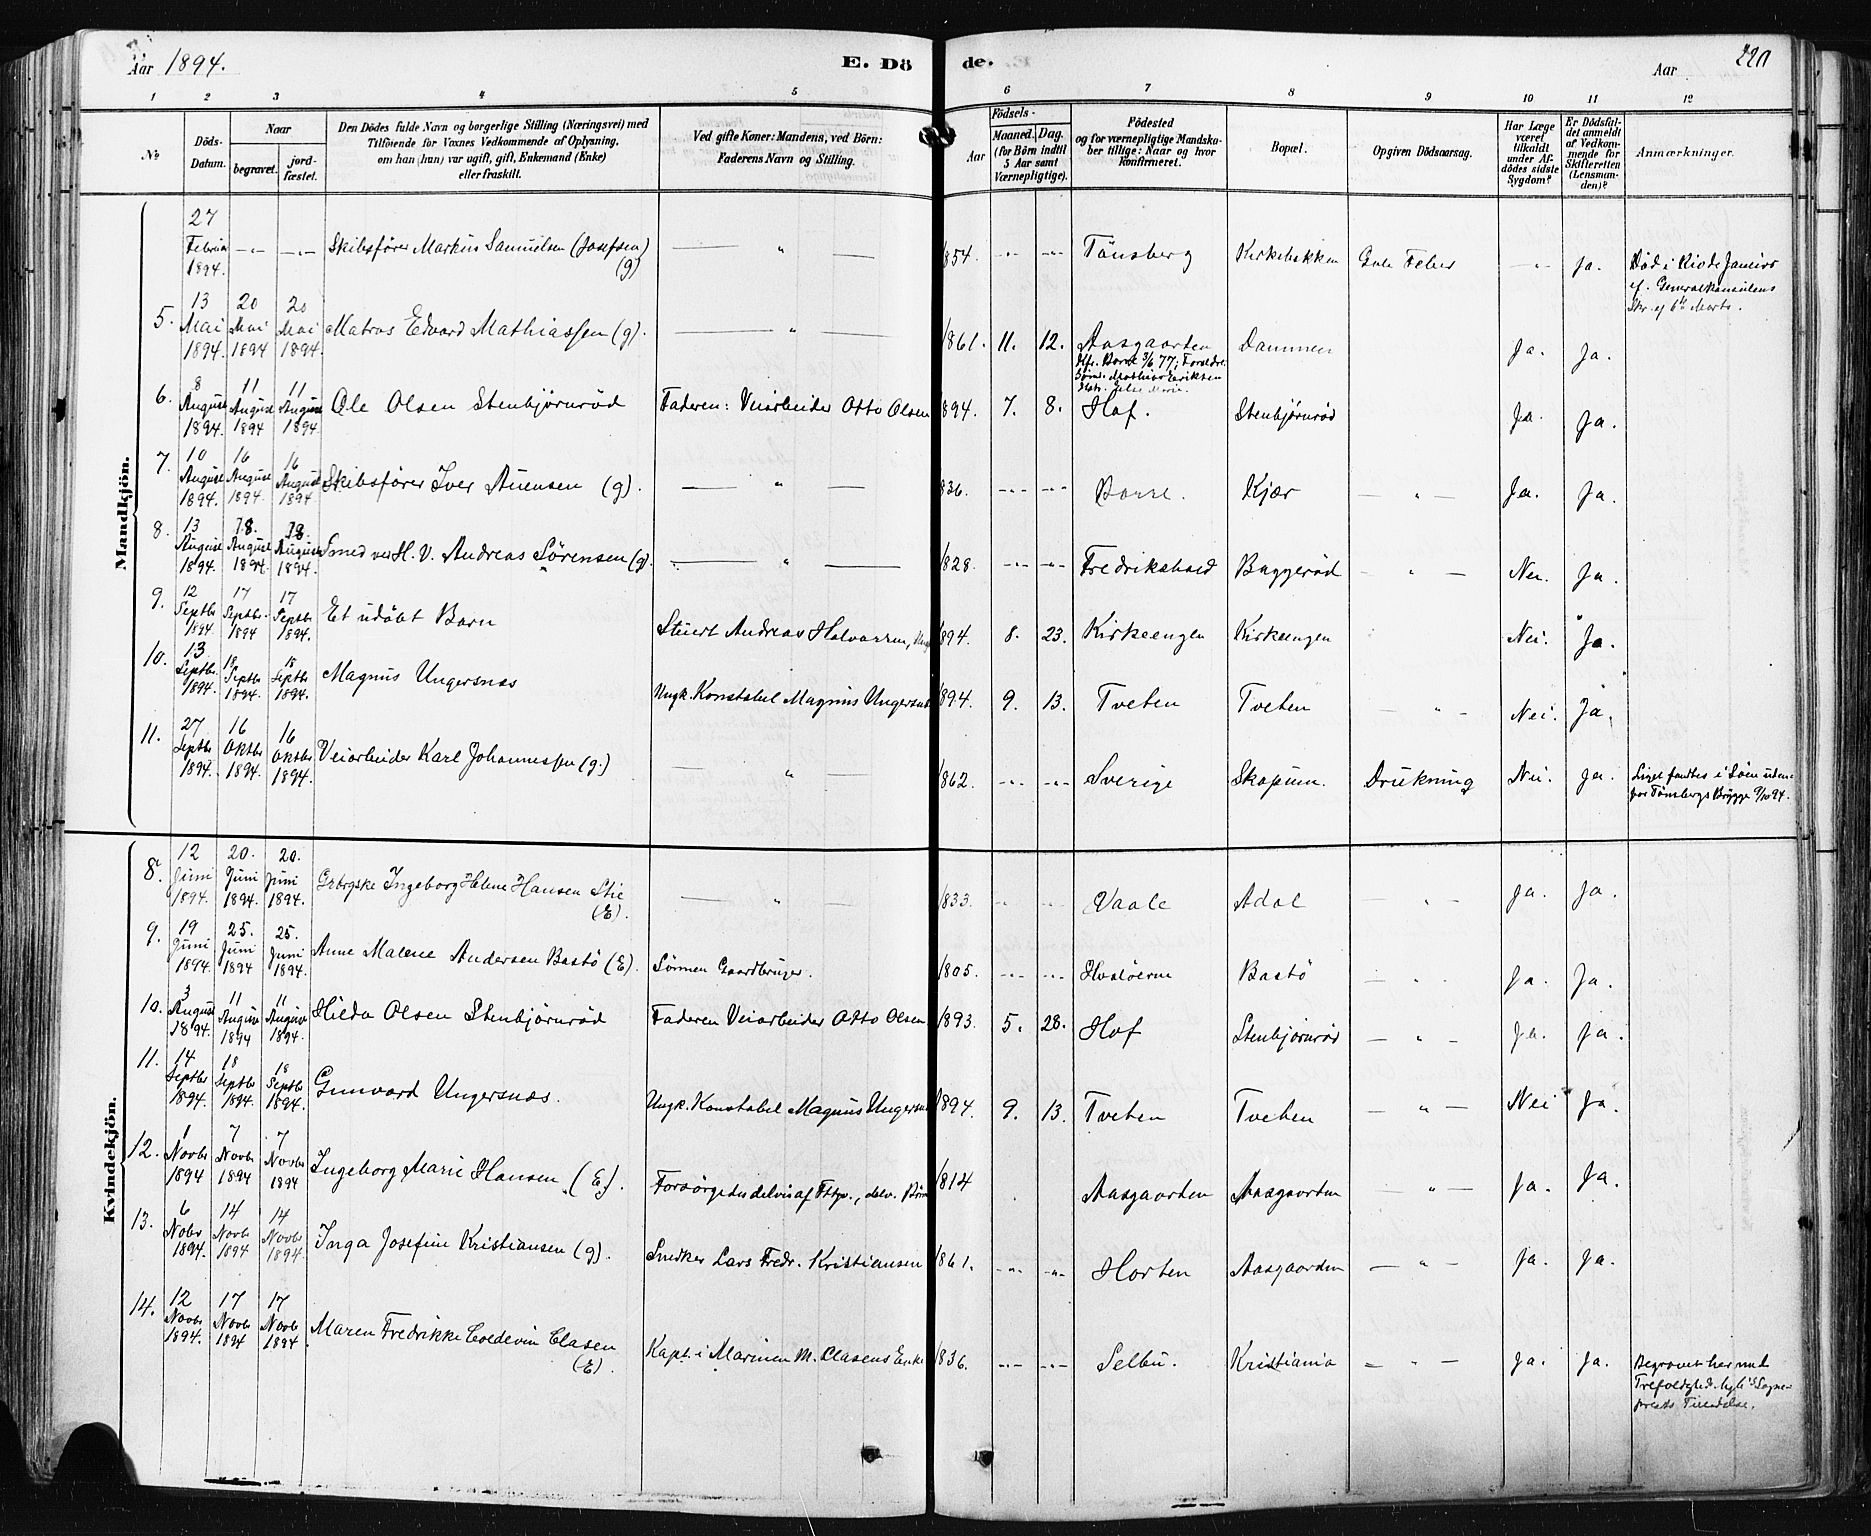 Aar 1894. E. Dö de. Aar 220
1 2 3 4 5 6 7 8 9 10 11 12
No
Döds-
Datum.
Naar
begravet.
jord-
fæstet.
Den Dödes fulde Navn og borgerlige Stilling (Næringsvei) med
Tilföiende for Voxnes Vedkommende af Oplysning,
om han (hun) var ugift, gift, Enkemand (Enke)
eller fraskilt.
Ved gifte Koner: Mandens, ved Börn:
Faderens Navn og Stilling.
Födsels-
Aar
Maaned. Dag.
(for Börn indtil
5 Aar samt
Værnepligtige).
Födested
og for værnepligtige Mandska-
ber tillige: Naar og hvor
konfirmeret.
Bopæl.
Opgiven Dödsaarsag.
Har Læge
været
tilkaldt
under Af-
dödes sidste
Sygdom?
Er Dödsfal-
det anmeldt
af Vedkom-
mende for
Skifteretten
(Lensman-
den)?
Anmærkninger.
Mandkjön.
27 Februar 1894. -"- -"- Skibsfører Markus Samuelsen (Josefsen) (g) — " — 1854. -"- -"- Tönsberg Kirkebakken Gule Feber -"- Ja. Död i Rio de Janeiro
cf. Generalkonsulens
Skr. af 6te Marts.
5. 13 Mai 1894. 20 Mai 1894 20 Mai 1894. Matros Edvard Mathiassen (g). — " — 1861. 11. 12. Aasgaarden Dammen Ja. Ja.
Kfr. Borre 3/6 77; Forældre
6. 8 August 1894. 11 August 1894 11 August 1894. Ole Olsen Stenbjørnrød Faderen: Veiarbeider Otto Olsen 1894. 7. 8. Hof. Stenbjørnrød Ja. Ja.
7. 10 August 1894. 16 August 1894. 16 August 1894 Skibsfører Iver Auensen (g). — " — 1836. -"- -"- Borre. Kjær — " — Ja. Ja.
8. 13 August 1894. 18. August 1894. 18. August 1894. Smed ved H. V. Andreas Sørensen (g). — " — 1828. -"- -"- Fredrikshald Baggerød — " — Nei. Ja.
9. 12 Septbr 1894 17 Septbr. 1894 17 Septbr 1894. Et udöbt Barn Stuert Andreas Halvorsen, 1894. 8. 23. Kirkeengen Kirkeengen Nei. Ja.
10. 13 Septbr. 1894. 18 Septbr 1894. 18 Septbr 1894. Magnus Ungersnæs Ungk. Konstabel Magnus Ungersnæs 1894. 9. 13. Tveten Tveten — " — Nei. Ja.
11. 27 Septbr 1894. 16 Oktbr 1894. 16 Oktbr 1894. Veiarbeider Karl Johannessen (g.) — " — 1862. -"- -"- Sverige Skopum. Drukning Nei. Ja. Liget fandtes i Söen uden-
for Tönsbergs Brygge 9/10 94.
Kvindekjön.
8. 12 Juni 1894. 20. Juni 1894. 20. Juni 1894. Grbrgske Ingeborg Helene Hansen Stie (E). — " — 1833. " -"- Vaale Adal — " — Ja. Ja.
9. 19 Juni 1894. 25. Juni 1894 25. Juni 1894. Anne Malene Andersen Bastö (E). Sönnen Gaardbruger. 1805. -"- -"- Hvaløerne Bastö — " . Ja. Ja.
10. 3 August 1894. 11 August 1894 11 August 1894. Hilda Olsen Stenbjørnrød Faderen Veiarbeider Otto Olsen 1893. 5. 28. Hof Stenbjørnrød — " — Ja. Ja.
11. 14 Septbr 1894. 18 Septbr 1894. 18 Septbr 1894. Gunvard Ungersnæs. Ungk. Konstabel Magnus Ungersnæs 1894. 9. 13. Tveten Tveten — " — Nei Ja.
12. 1 Novbr 1894 7 Novbr 1894 7 Novbr 1894 Ingeborg Marie Hansen. (E.). Forsörgedes delvis af Fttgv., delv. Börn 1814 Aasgaarden Aasgaarden — " — Ja. Ja.
13. 6 Nobr 1894. 14 Novbr 1894 14 Novbr 1894. Inga Josefine Kristiansen (g). Snedker Lars Fredr. Kristiansen 1861. -"- -"- Horten Aasgaarden — " — Ja. Ja.
14. 12 Novbr 1894. 17 Novbr 1894 17 Novbr 1894. Maren Fredrikke Coldevin Clasen (E). Kapt. i Marinen M. Clasens Enke 1836. -"- -"- Selbu. Kristiania — " — Ja. Ja. Begravet her med
Trefoldighed. Sogne-
præsts Tilladelse.